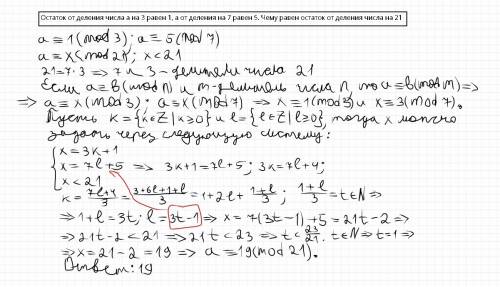 Остаток от деления числа a на 3 равен 1, а от деления на 7 равен 5. Чему равен остаток от деления числа на 21
a ≡ 1(mod 3); a ≡ 5(mod 7)
a ≡ x(mod 21); x < 21
21 = 7·3 ⇒ 7 и 3 - делители числа 21
Если a ≡ b(mod n) и m-делитель числа n, то a ≡ b(mod m) ⇒
⇒ a ≡ x(mod 3); a ≡ x(mod 7) ⇒ x ≡ 1(mod 3) и x ≡ 3(mod 7).
Пусть k = {x∈Z | x ≥ 0} и l = {l∈Z | l ≥ 0}, тогда x можно
задать через следующую систему:
{ x = 3k+1
x = 7l+5 ⇒ 3k+1 = 7l+5; 3k = 7l+4;
x < 21
k = (7l+4)/3 = (3+6l+1+l)/3 = 1+2l+ (1+l)/3; (1+l)/3 = t∈N ⇒
⇒ 1+l = 3t; l = 3t-1 ⇒ x = 7(3t-1)+5 = 21t-2 ⇒
⇒ 21t-2 < 21 ⇒ 21t < 23 ⇒ t < 23/21. t∈N ⇒ t = 1 ⇒
⇒ x = 21-2 = 19 ⇒ a ≡ 19(mod 21).
Ответ: 19